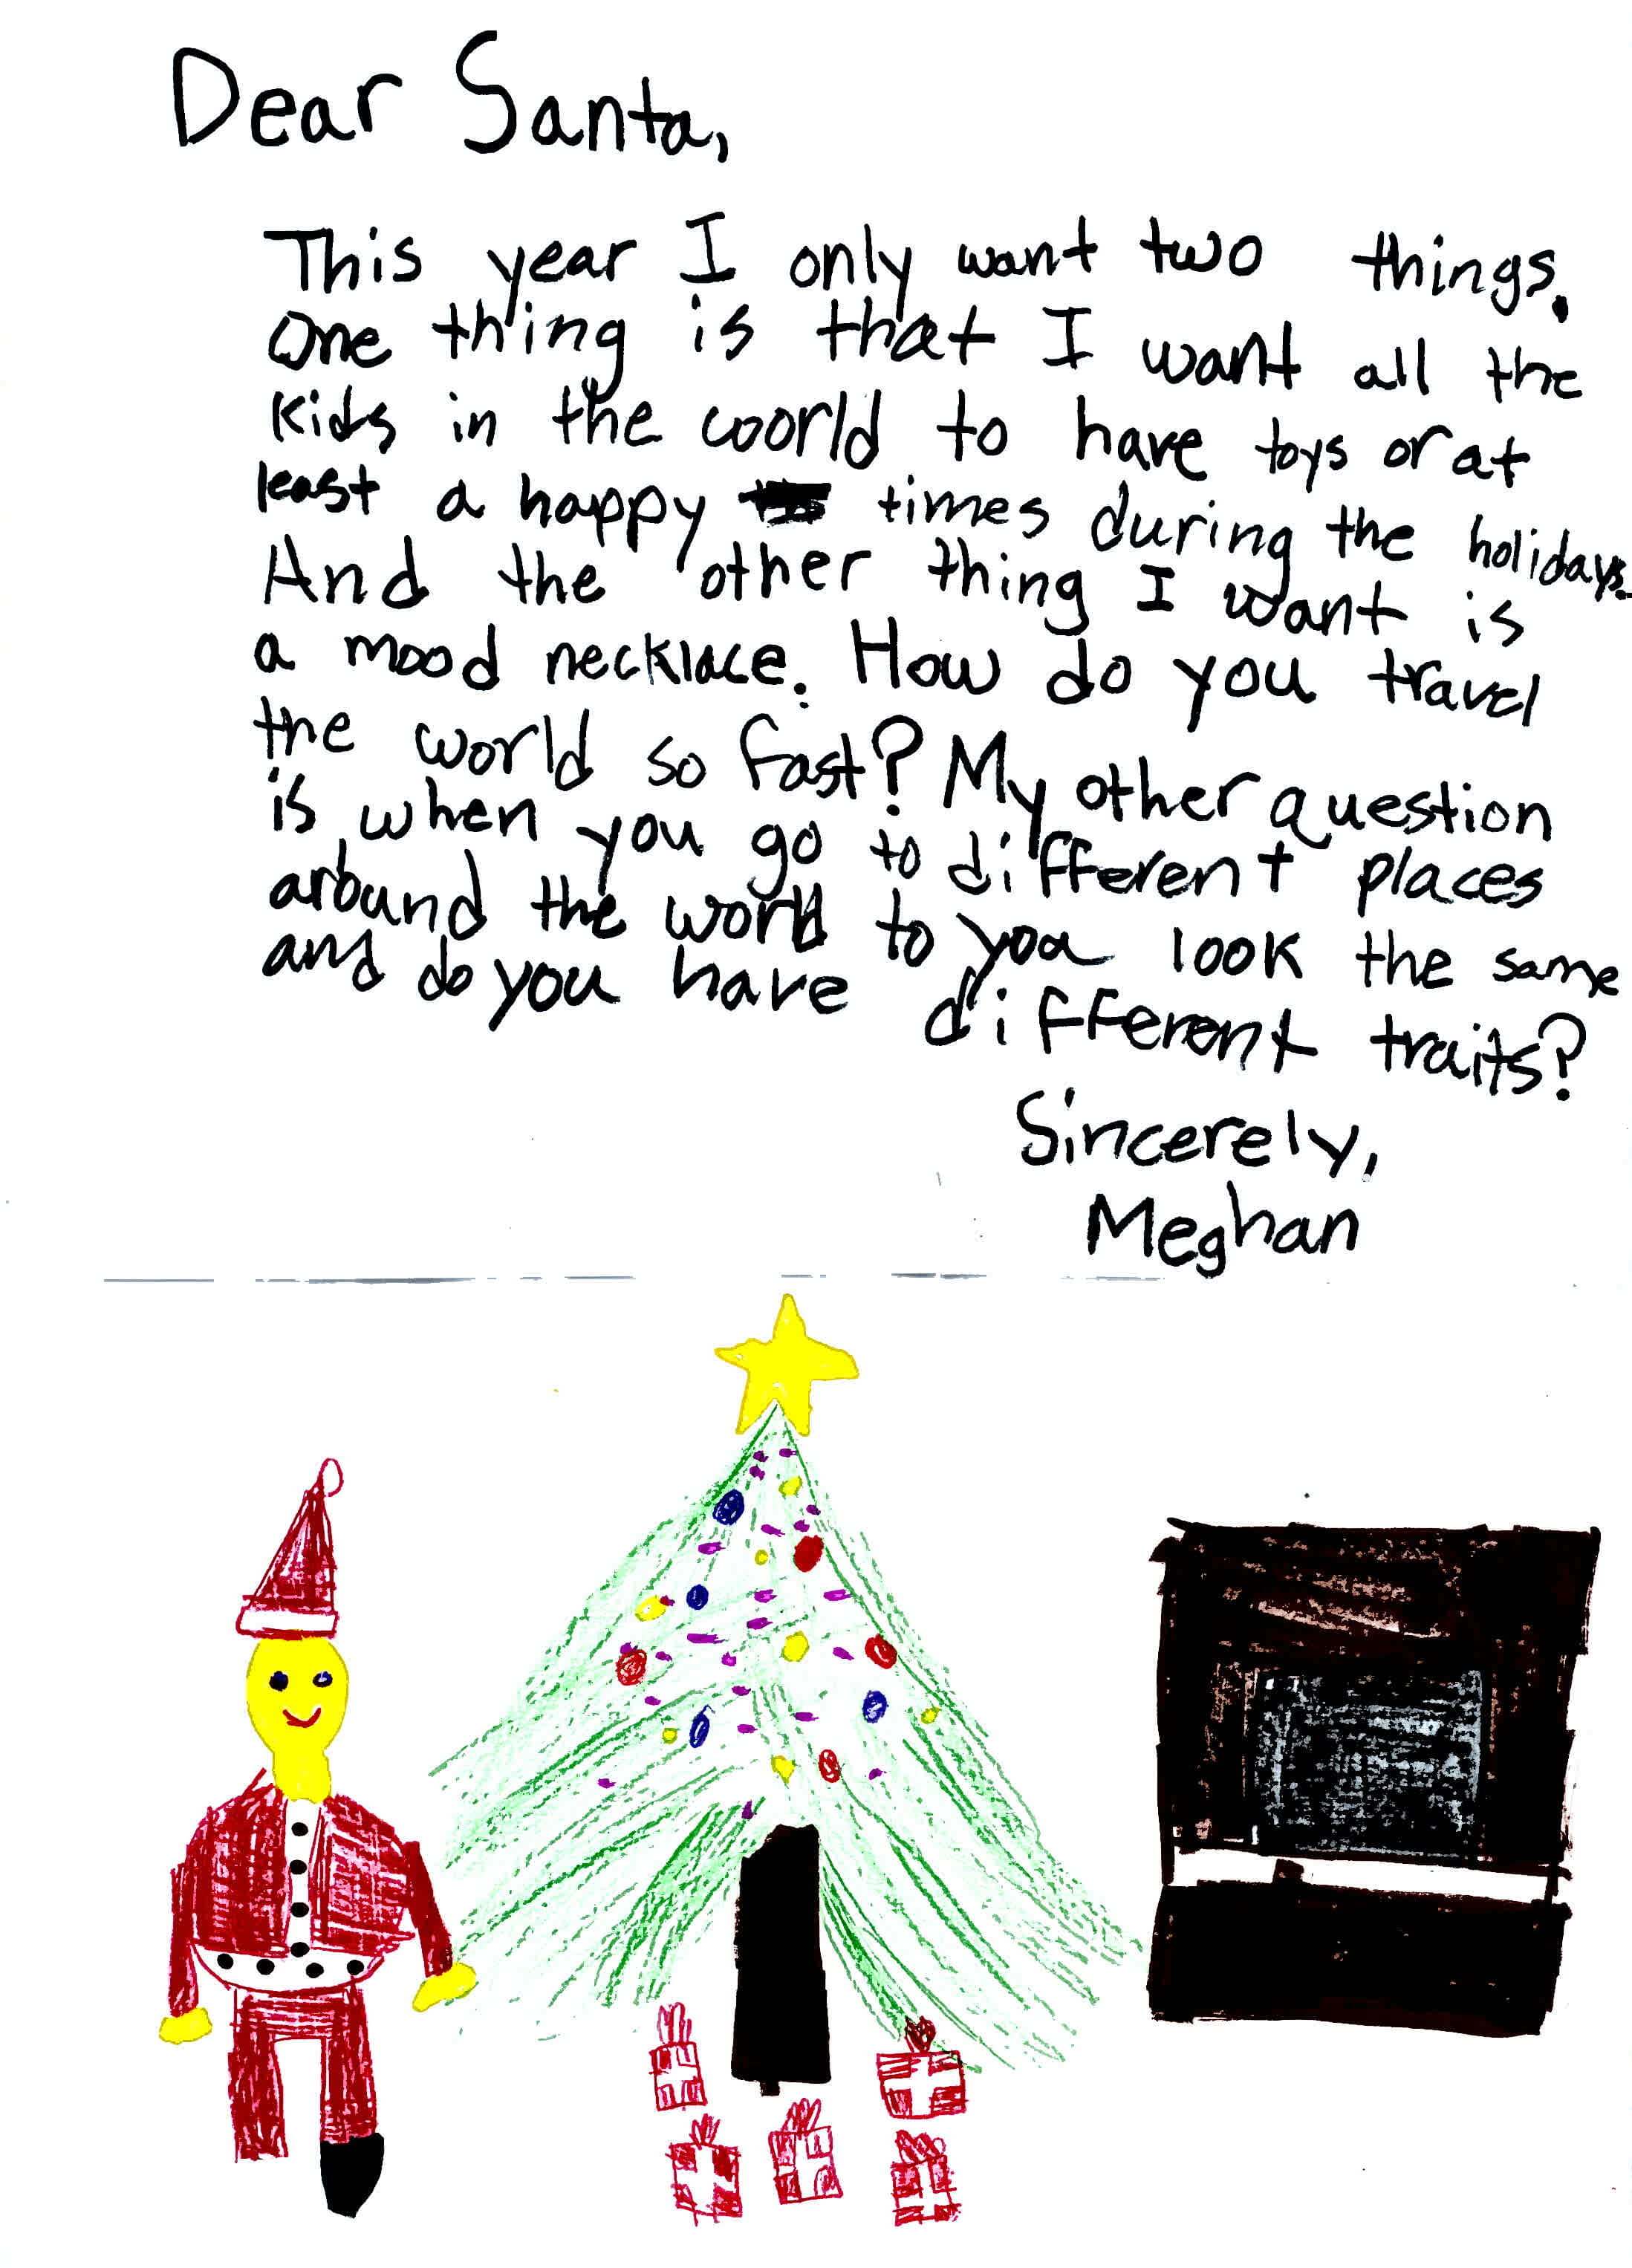 Dear Santa,
This year I only want two things.
One thing is that I want all the
kids in the woorld to have toys or at
least a happy times during the holidays.
And the other thing I want is
a mood necklace. How do you travel
the world so fast? My other question
is when you go to different places
around the world to you look the same
and do you have different traits?
Sincerely,
Meghan